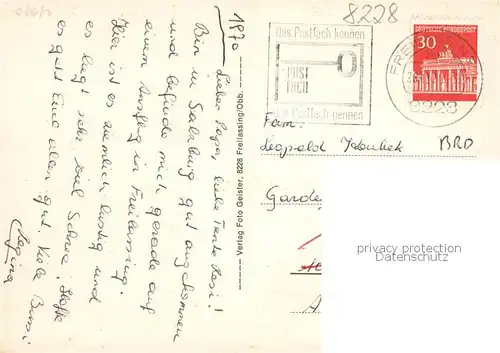 1970
Lieber Papa, liebe Tante Resi!
Bin in Salzburg gut angekommen
und befinde mich gerade auf
einem Ausflug in Freilassing.
Hier ist es ziemlich lustig und
es liegt sehr viel Schnee. Hoffe
es geht Euch allen gut. Viele Bussi
Regina
Verlag Foto Geisler, 8228 Freilassing/Obb.
8228
Das Postfach kennen
POST
FACH
Postfach nennen
8228
30
DEUTSCHE BUNDESPOST
Fam.
Leopold
BRD
privacy protection
AK / Ansichtskarten